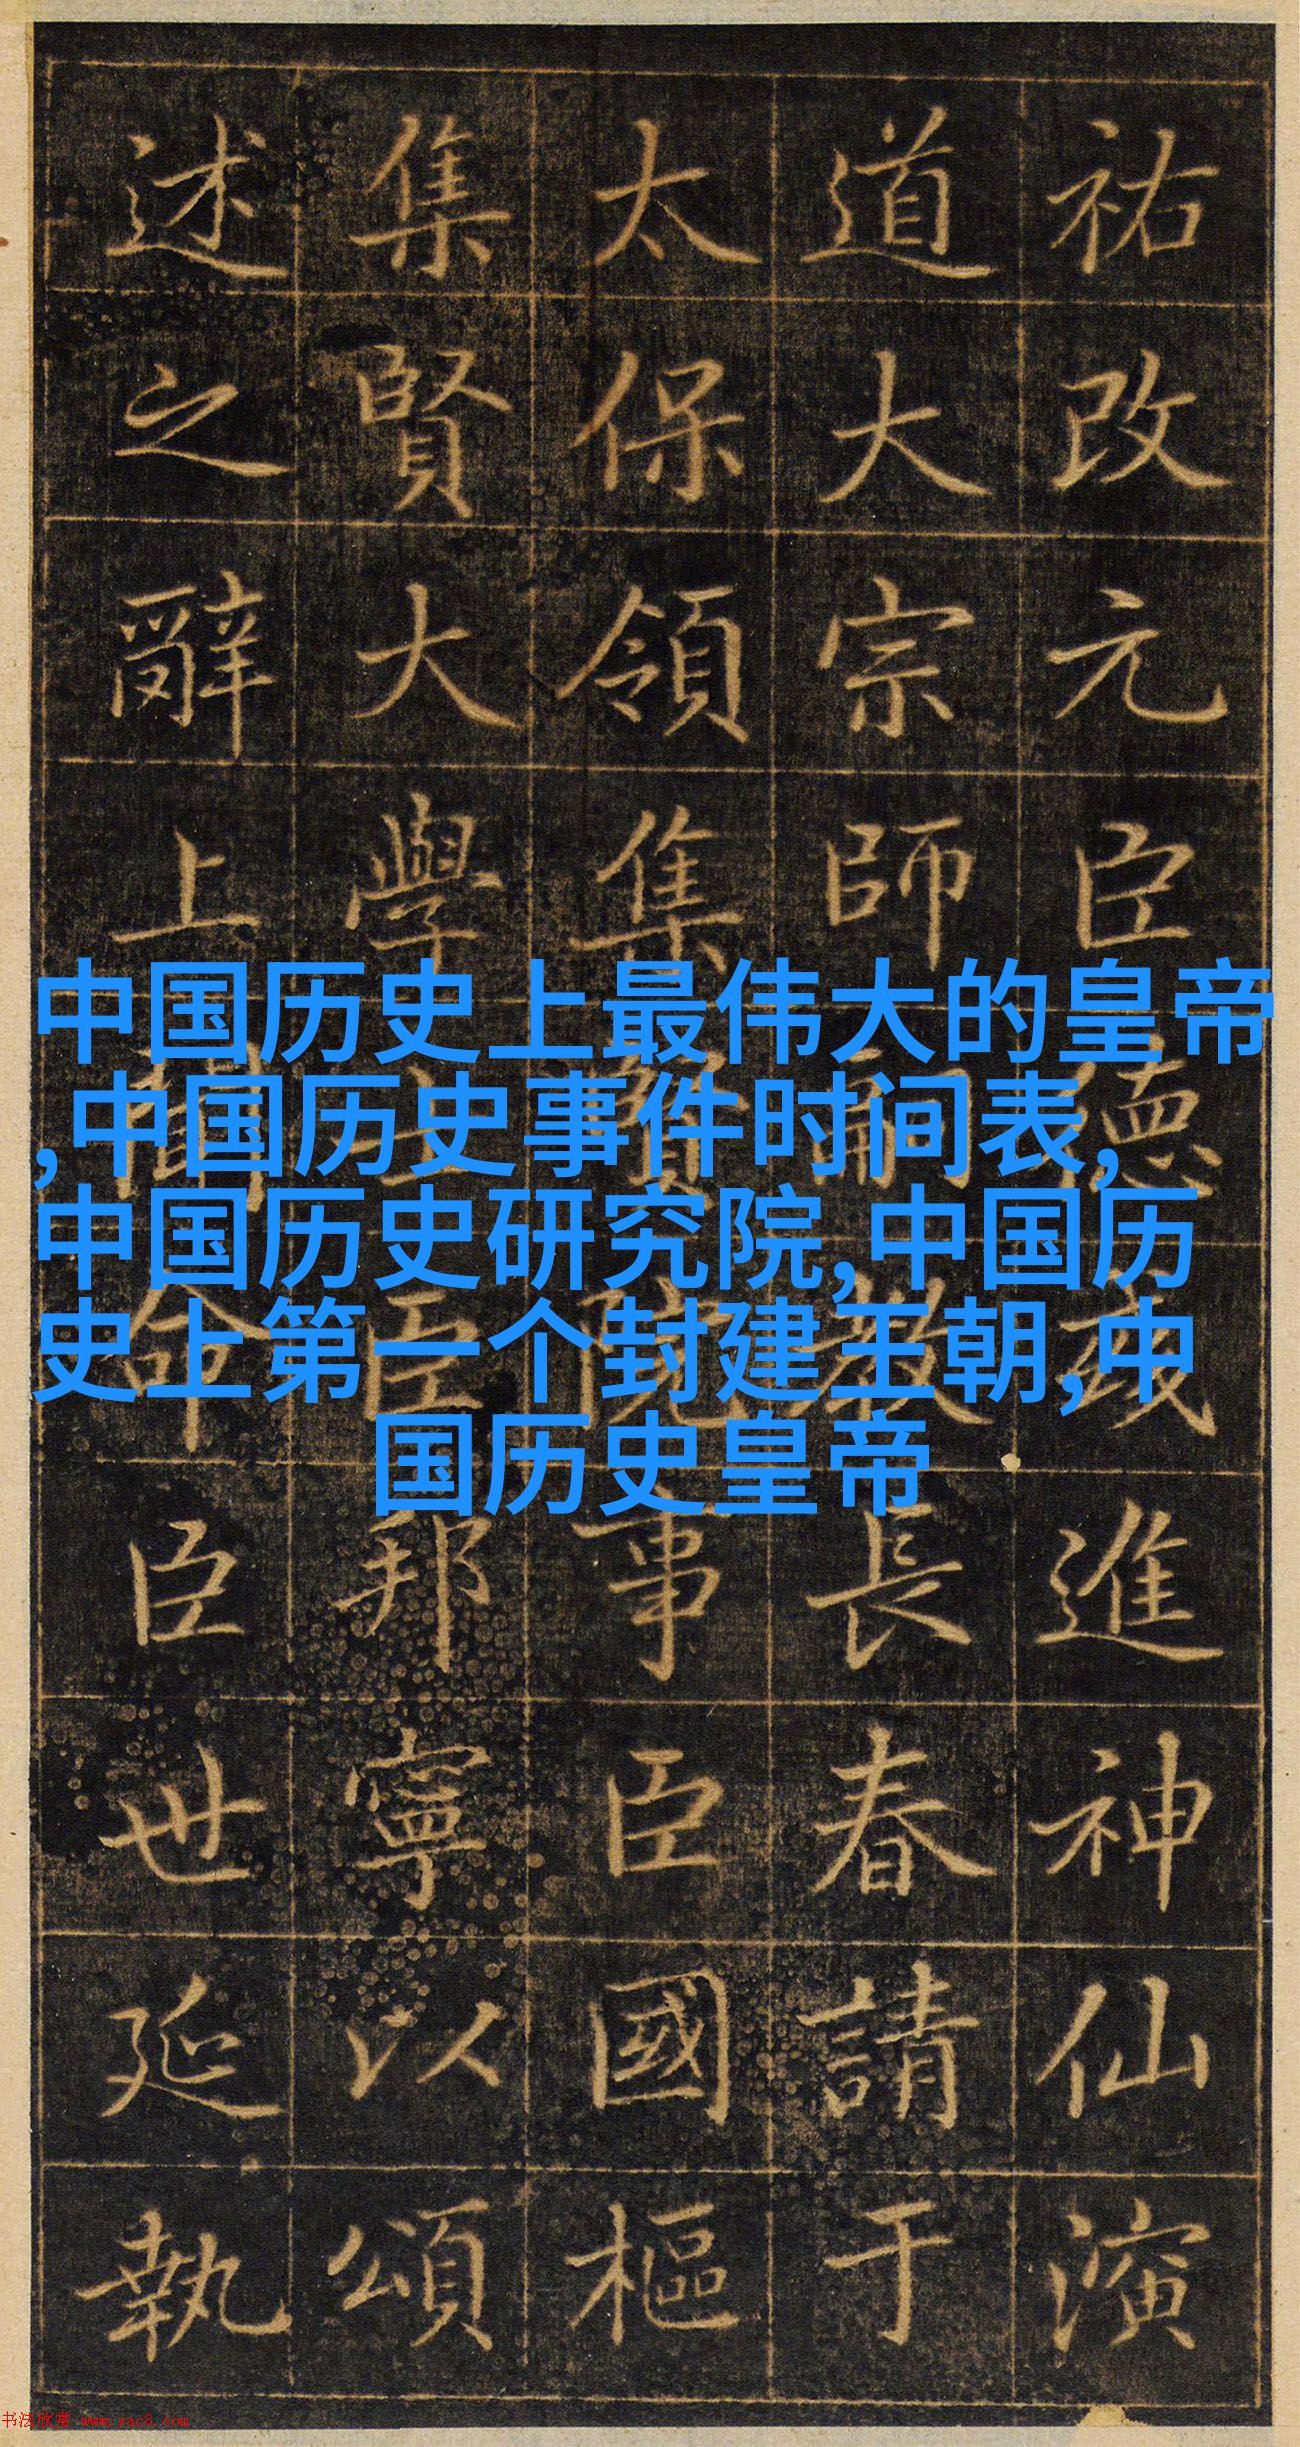 祐改元臣德彧進神仙演
道大宗師嗣教長春請于
太保領集賢院事臣國樞
集賢大學士臣邦寧以頌
述之辭上聞命臣世延執
中国历史上最伟大的皇帝
,中国历史事件时间表,
中国历史研究院,中国历
史上第一个封建王朝,中
国历史皇帝
书法欣赏 www.yac8.com